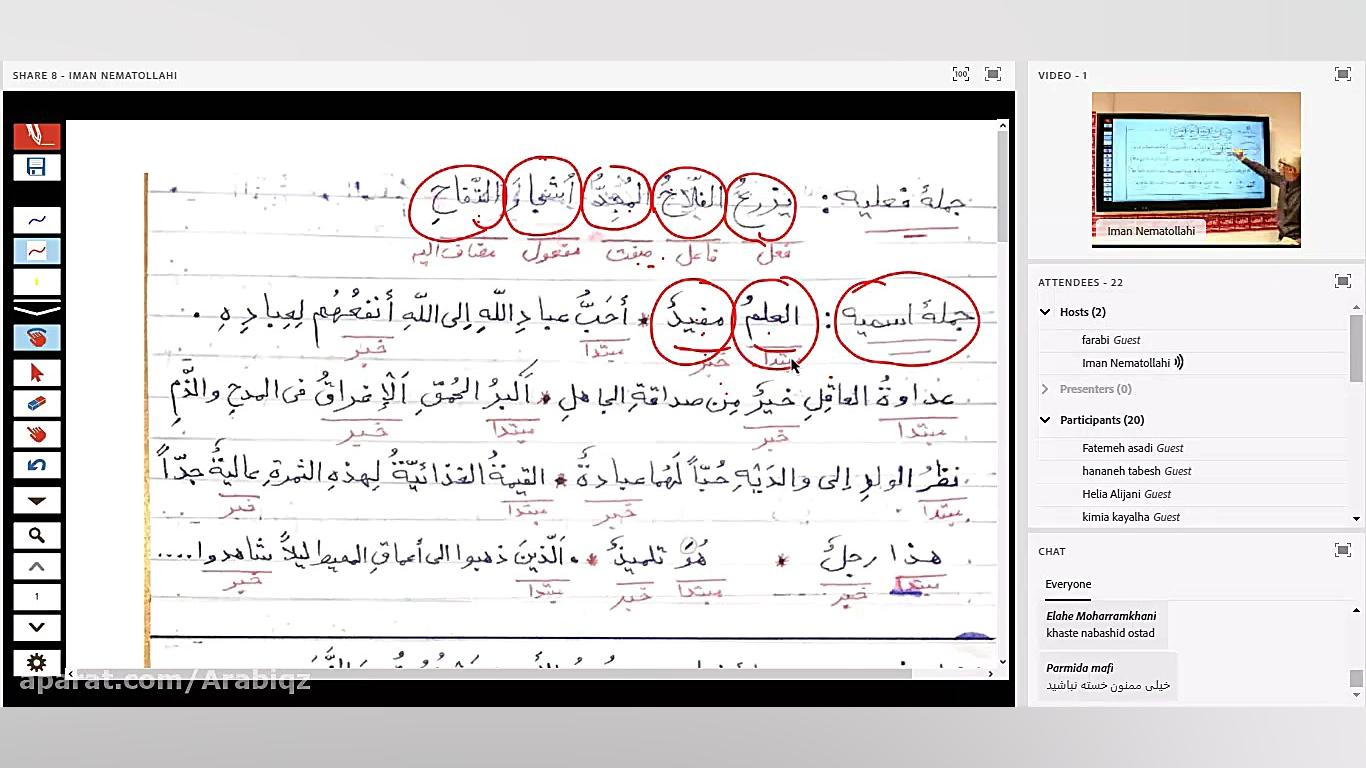 SHARE 8 - IMAN NEMATOLLAHI
100
جملهٔ فعلیه : یَزرعُ الفَلّاحُ المُجِدُّ أشجارَ التُّفاحِ
فعل فاعل . صفت مفعول مضاف الیه
جملهٔ اسمیه : العلمُ مفیدٌ * أحَبُّ عبادِ اللّهِ إلی اللّهِ أنفَعُهُم لِعِبادِهِ .
مبتدا خبر مبتدا خبر
عداوةُ العاقِلِ خَیرٌ مِن صداقةِ الجاهلِ * أکبرُ الحُمقِ اَلْإغراقُ فی المدحِ والذَّمِ
مبتدا خبر مبتدا خبر
نَظَرُ الولدِ إلی والدَیْهِ حُبّاً لَهُما عبادةٌ * القیمةُ الغذائیّةُ لِهذهِ الثمرةِ عالیةٌ جدّاً
مبتدا خبر مبتدا خبر
هذا رجلٌ * هُوَ تلمیذٌ * اَلّذینَ ذهبوا الی أعماقِ المحیط لیلاً شاهدوا ....
مبتدا خبر مبتدا خبر مبتدا خبر
1
aparat.com/Arabiqz
VIDEO - 1
Iman Nematollahi
ATTENDEES - 22
Hosts (2)
farabi Guest
Iman Nematollahi
Presenters (0)
Participants (20)
Fatemeh asadi Guest
hananeh tabesh Guest
Helia Alijani Guest
kimia kayalha Guest
CHAT
Everyone
Elahe Moharramkhani
khaste nabashid ostad
Parmida mafi
خیلی ممنون خسته نباشید